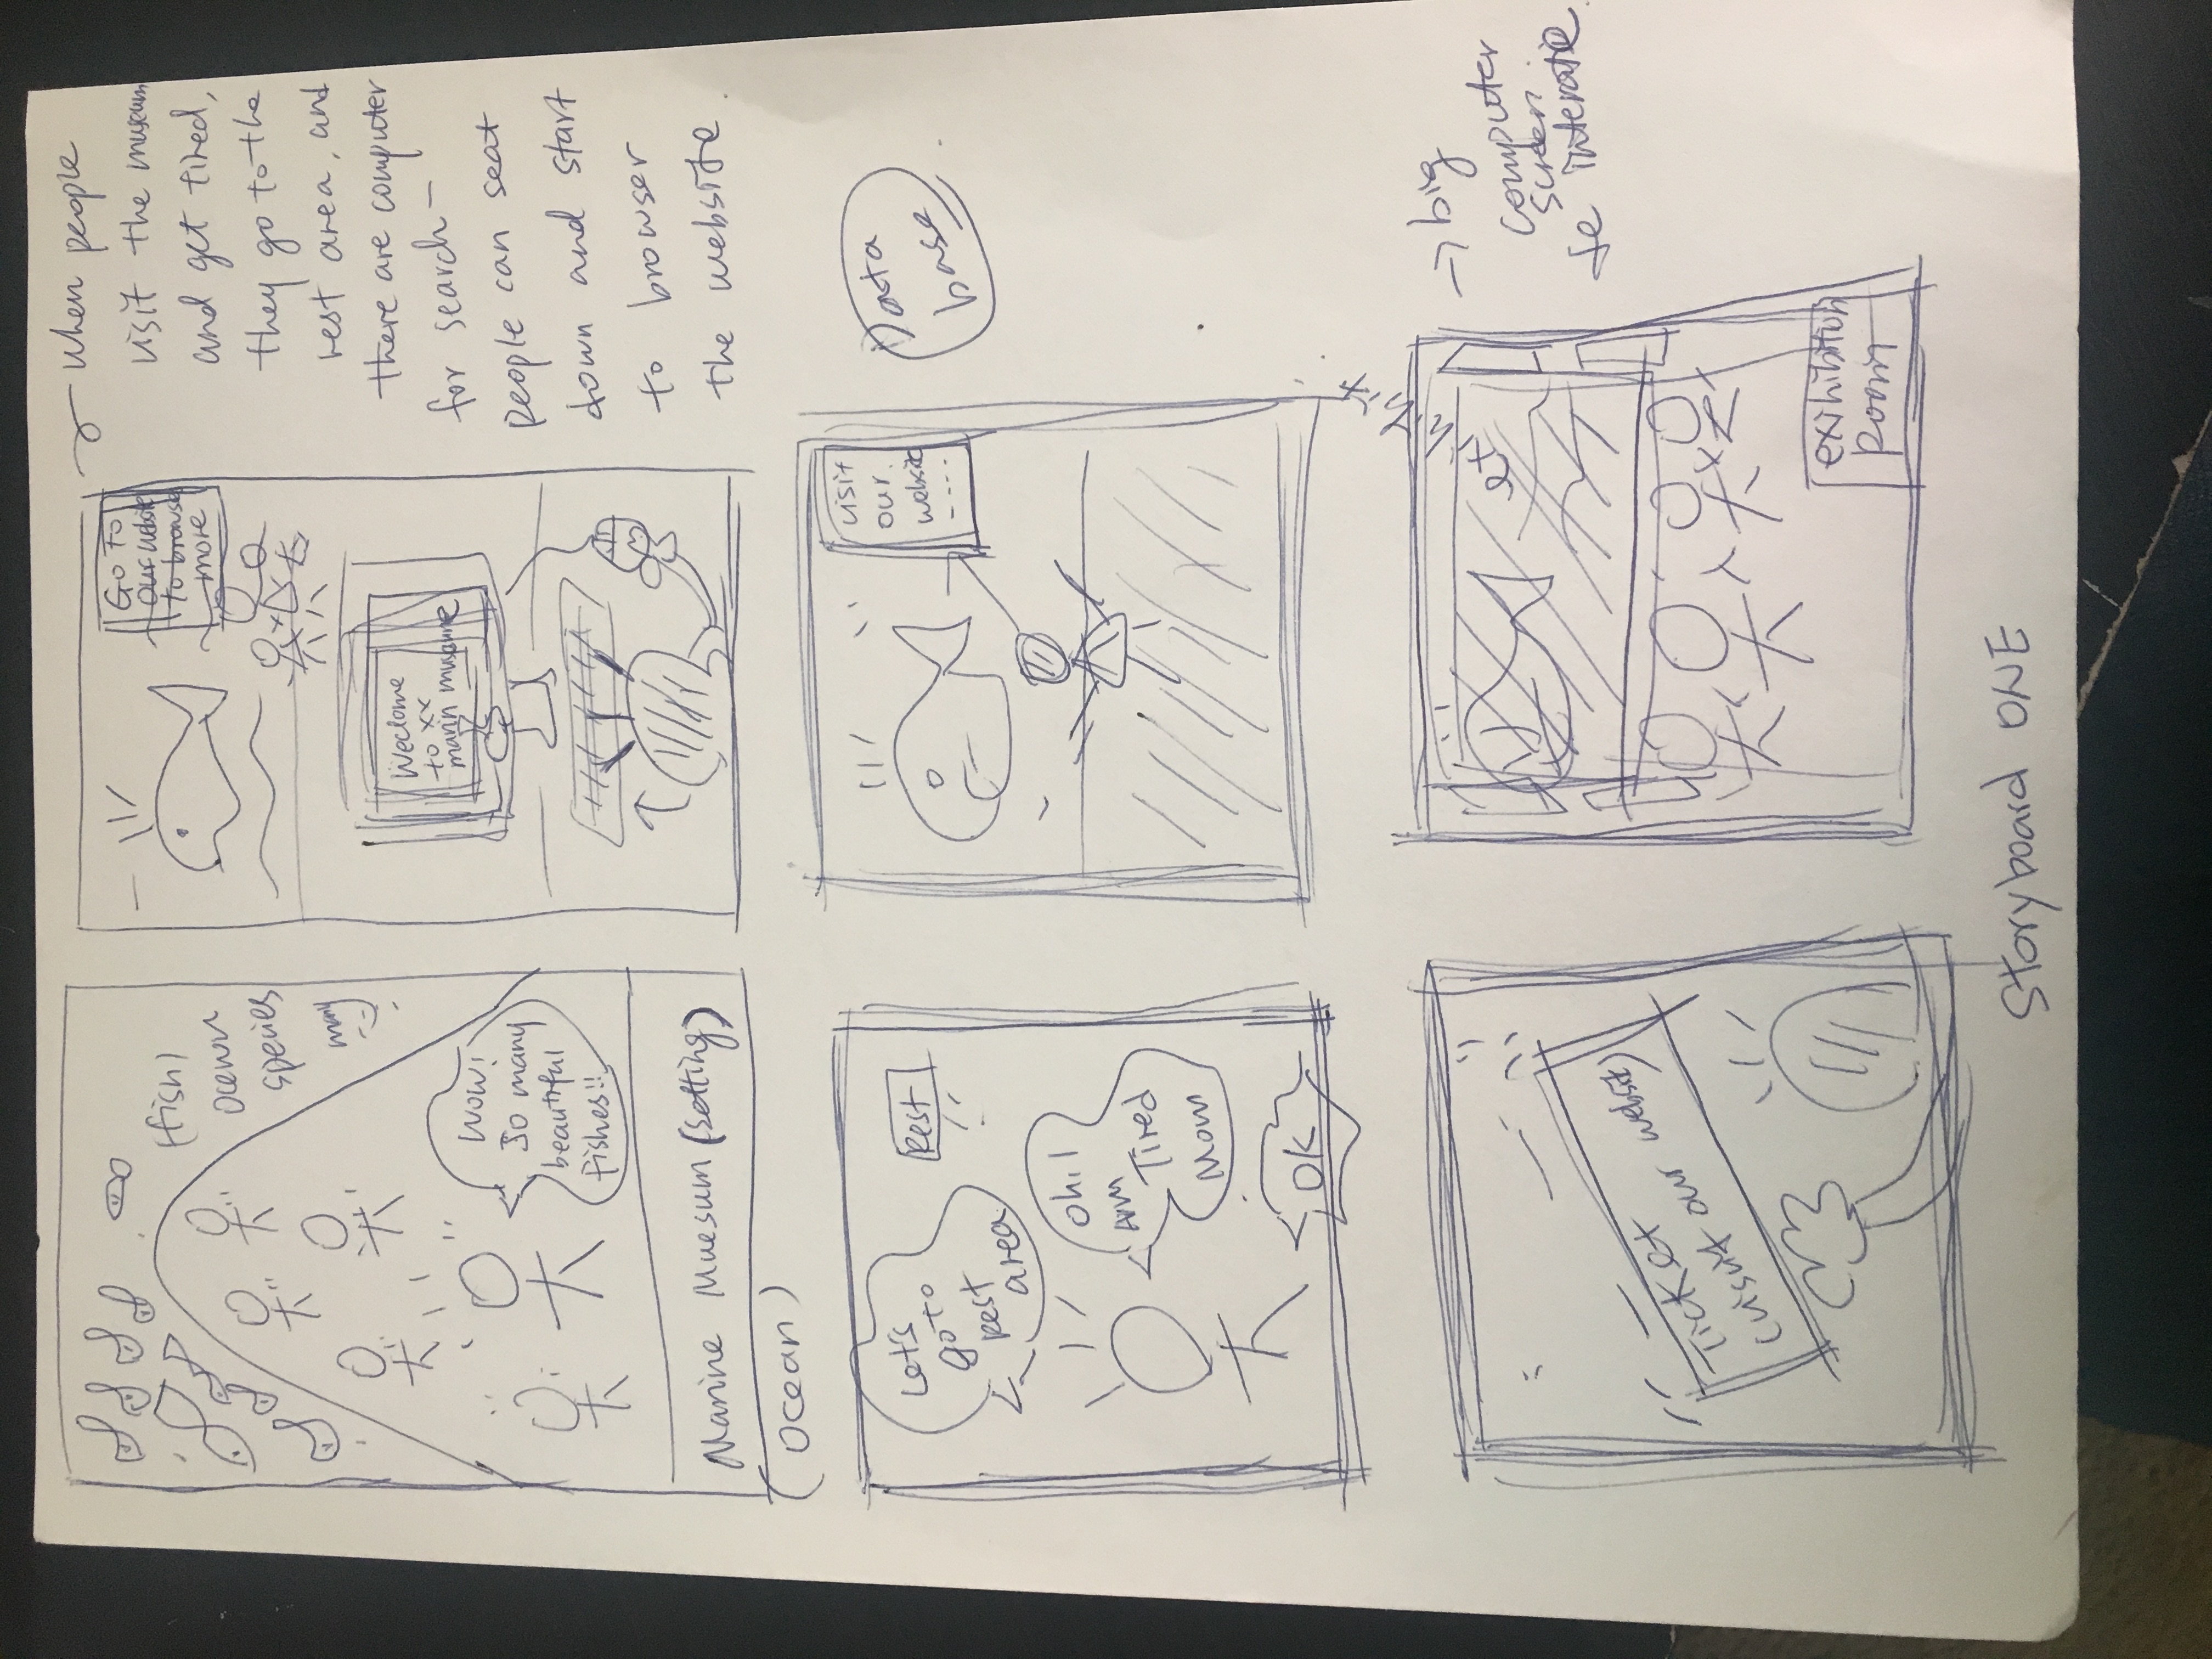 (fish)
ocean
species
Wow!
So many
beautiful
fishes!!
Marine Muesum (setting)
(ocean)
Go to
our website
to browse
more
Weclome
to xx
marin musume
when people
visit the museum
and get tired,
they go to the
rest area, and
there are computer
for search—
people can seat
down and start
to browser
the website.
Rest
Let's
go to
rest
area
Oh! I
am
Tired
Mom
OK
visit
our
website
----
Data
base
Ticket
(visit our website)
exihibition
Room
→ big
computer
screen
interatie
Storyboard ONE